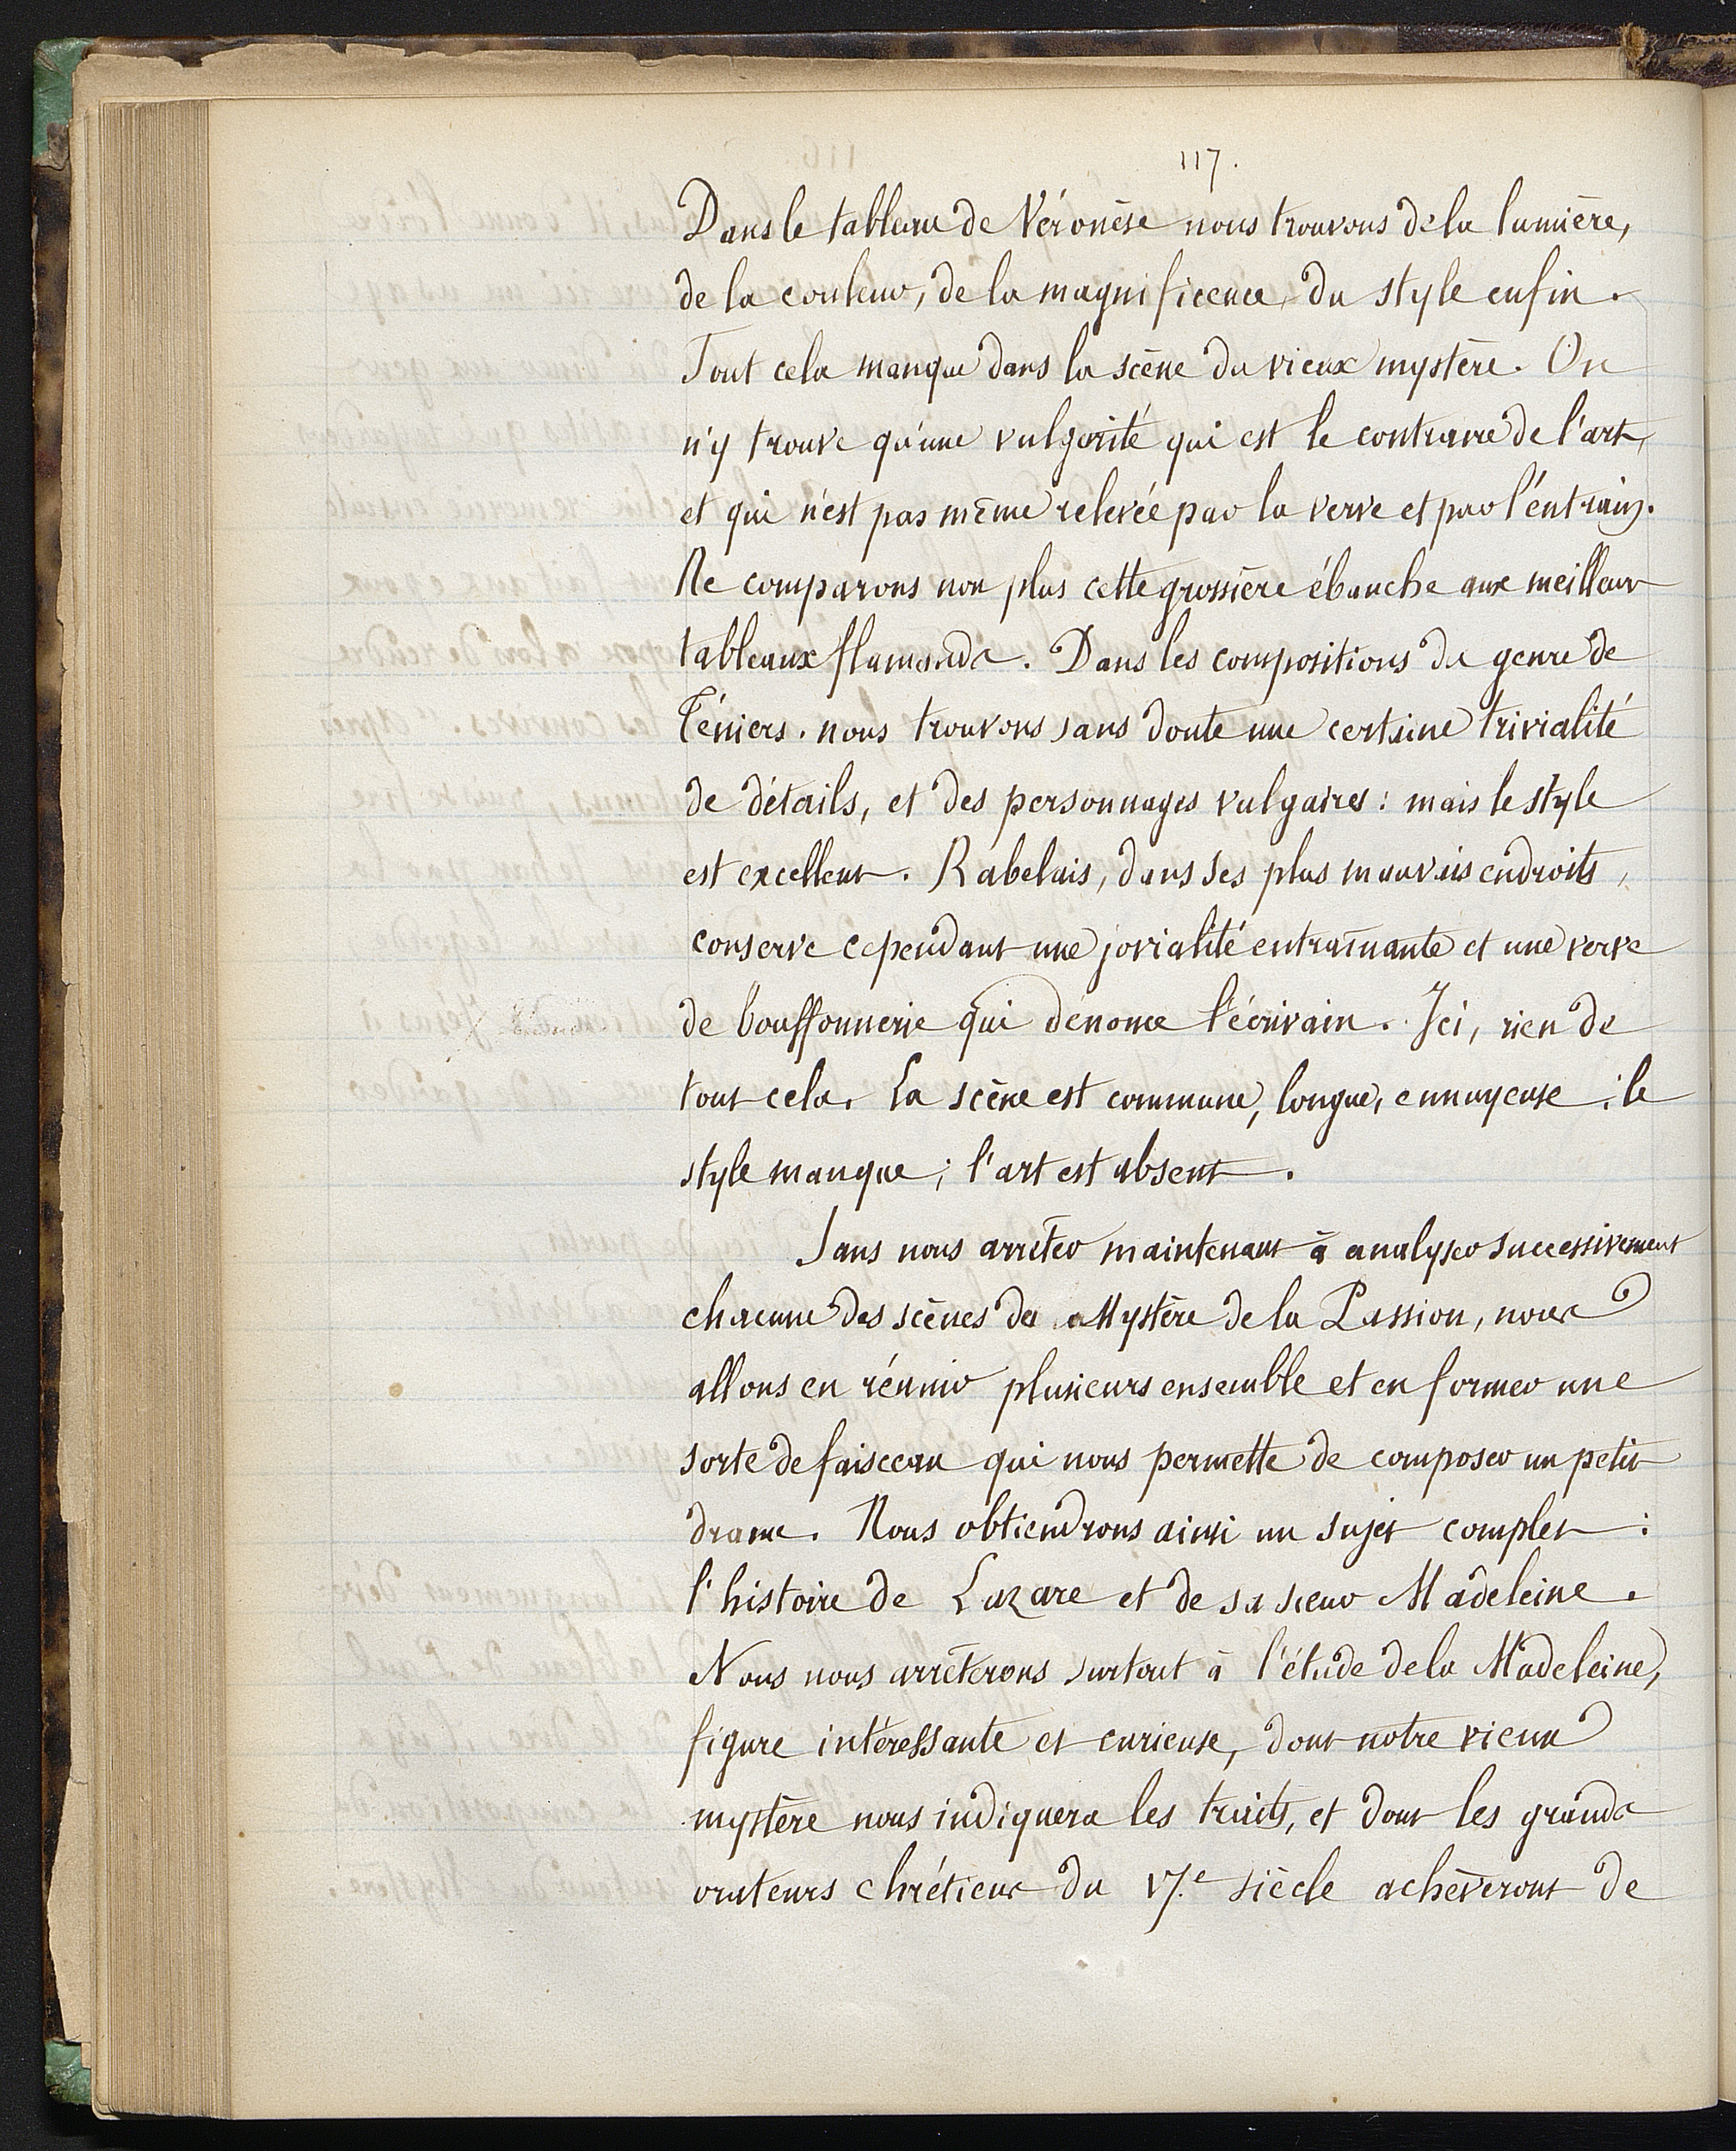 117.
Dans le tableau de Véronèse nous trouvons de la lumière,
de la couleur, de la magnificence, du style enfin.
Tout cela manque dans la scène du vieux mystère. On
n'y trouve qu'une vulgarité qui est le contraire de l'art,
et qui n'est pas même relevée par la verve et par l'entrain.
Ne comparons non plus cette grossière ébauche aux meilleurs
tableaux flamands. Dans les compositions du genre de
Téniers. nous trouvons sans doute une certaine trivialité
de détails, et des personnages vulgaires : mais le style
est excellent. Rabelais, dans ses plus mauvais endroits,
conserve cependant une jovialité entraînante et une verve
de bouffonnerie qui dénonce l'écrivain. Ici, rien de
tout cela. La scène est commune, longue, ennuyeuse ; le
style manque ; l'art est absent.
Sans nous arrêter maintenant à analyser successivement
chacune des scènes du Mystère de la Passion, nous
allons en réunir plusieurs ensemble et en former une
sorte de faisceau qui nous permette de composer un petit
drame. Nous obtiendrons ainsi un sujet complet :
l'histoire de Lazare et de sa sœur Madeleine.
Nous nous arrêterons surtout à l'étude de la Madeleine,
figure intéressante et curieuse, dont notre vieux
mystère nous indiquera les traits, et dont les grands
orateurs chrétiens du 17.e siècle achèveront de